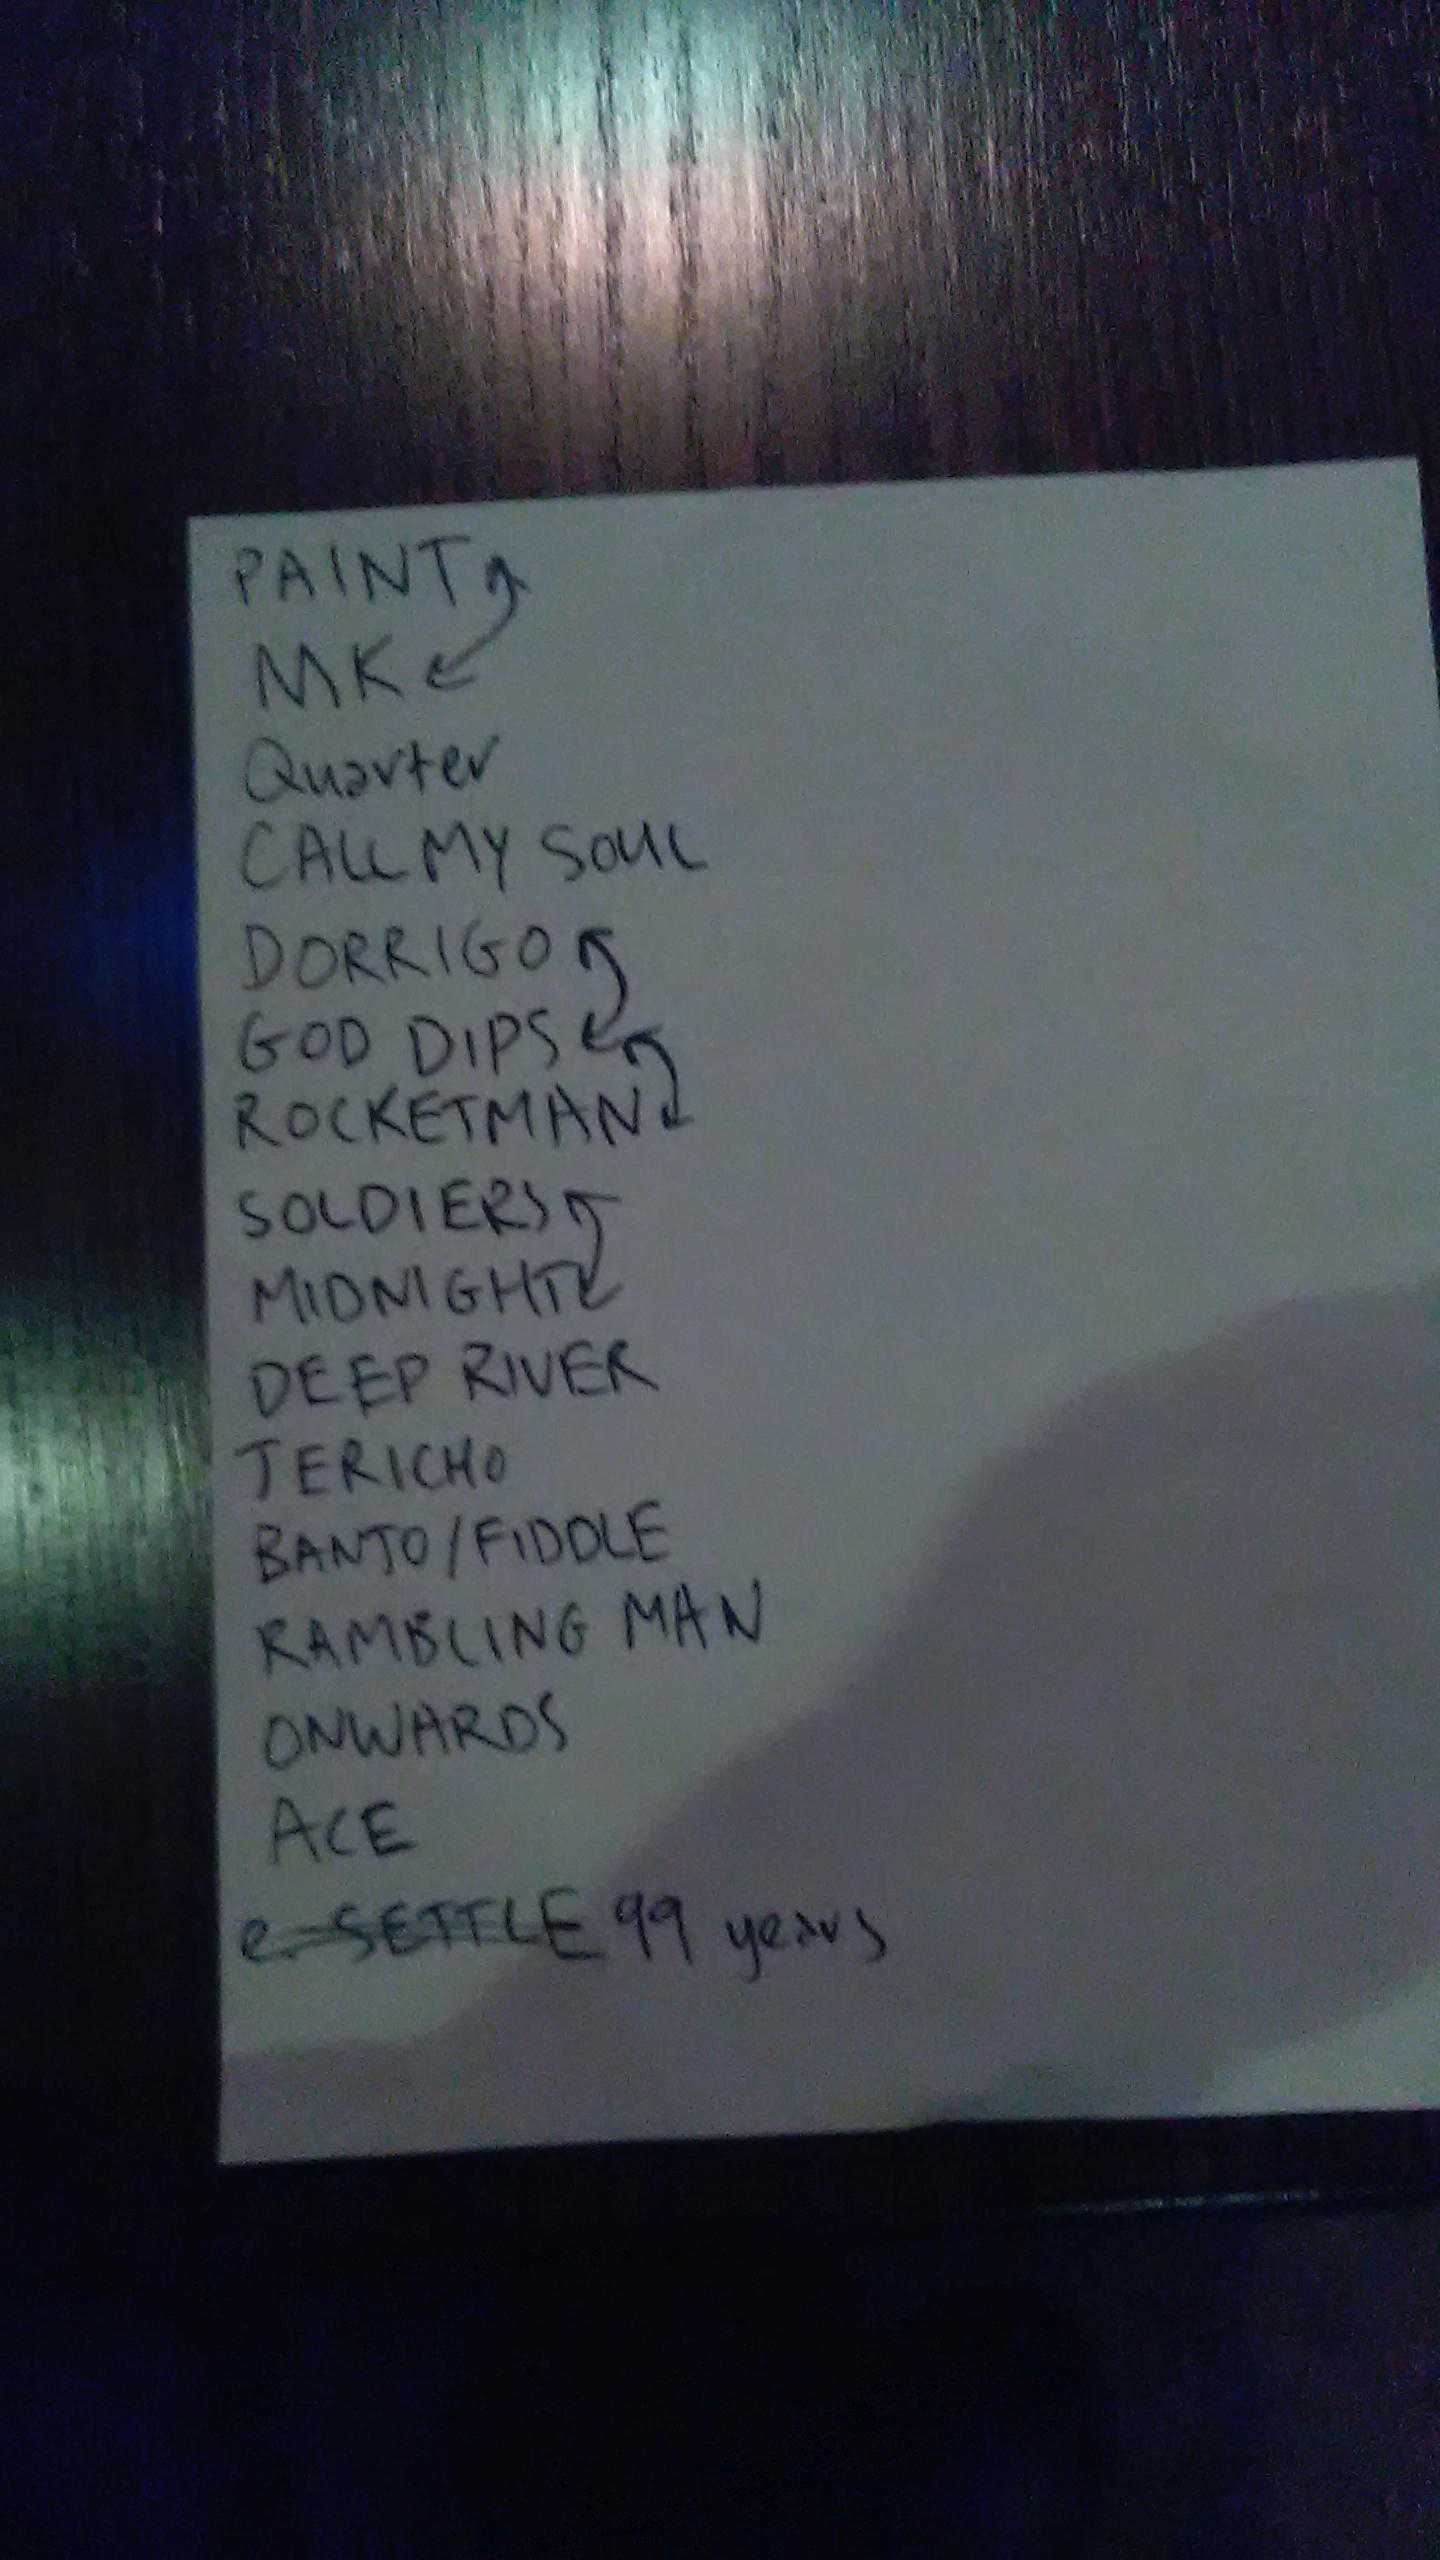 PAINT
MK
Quarter
CALL MY SOUL
DORRIGO
GOD DIPS
ROCKETMAN
SOLDIERS
MIDNIGHT
DEEP RIVER
JERICHO
BANJO/FIDDLE
RAMBLING MAN
ONWARDS
ACE
e SETTLE 99 years